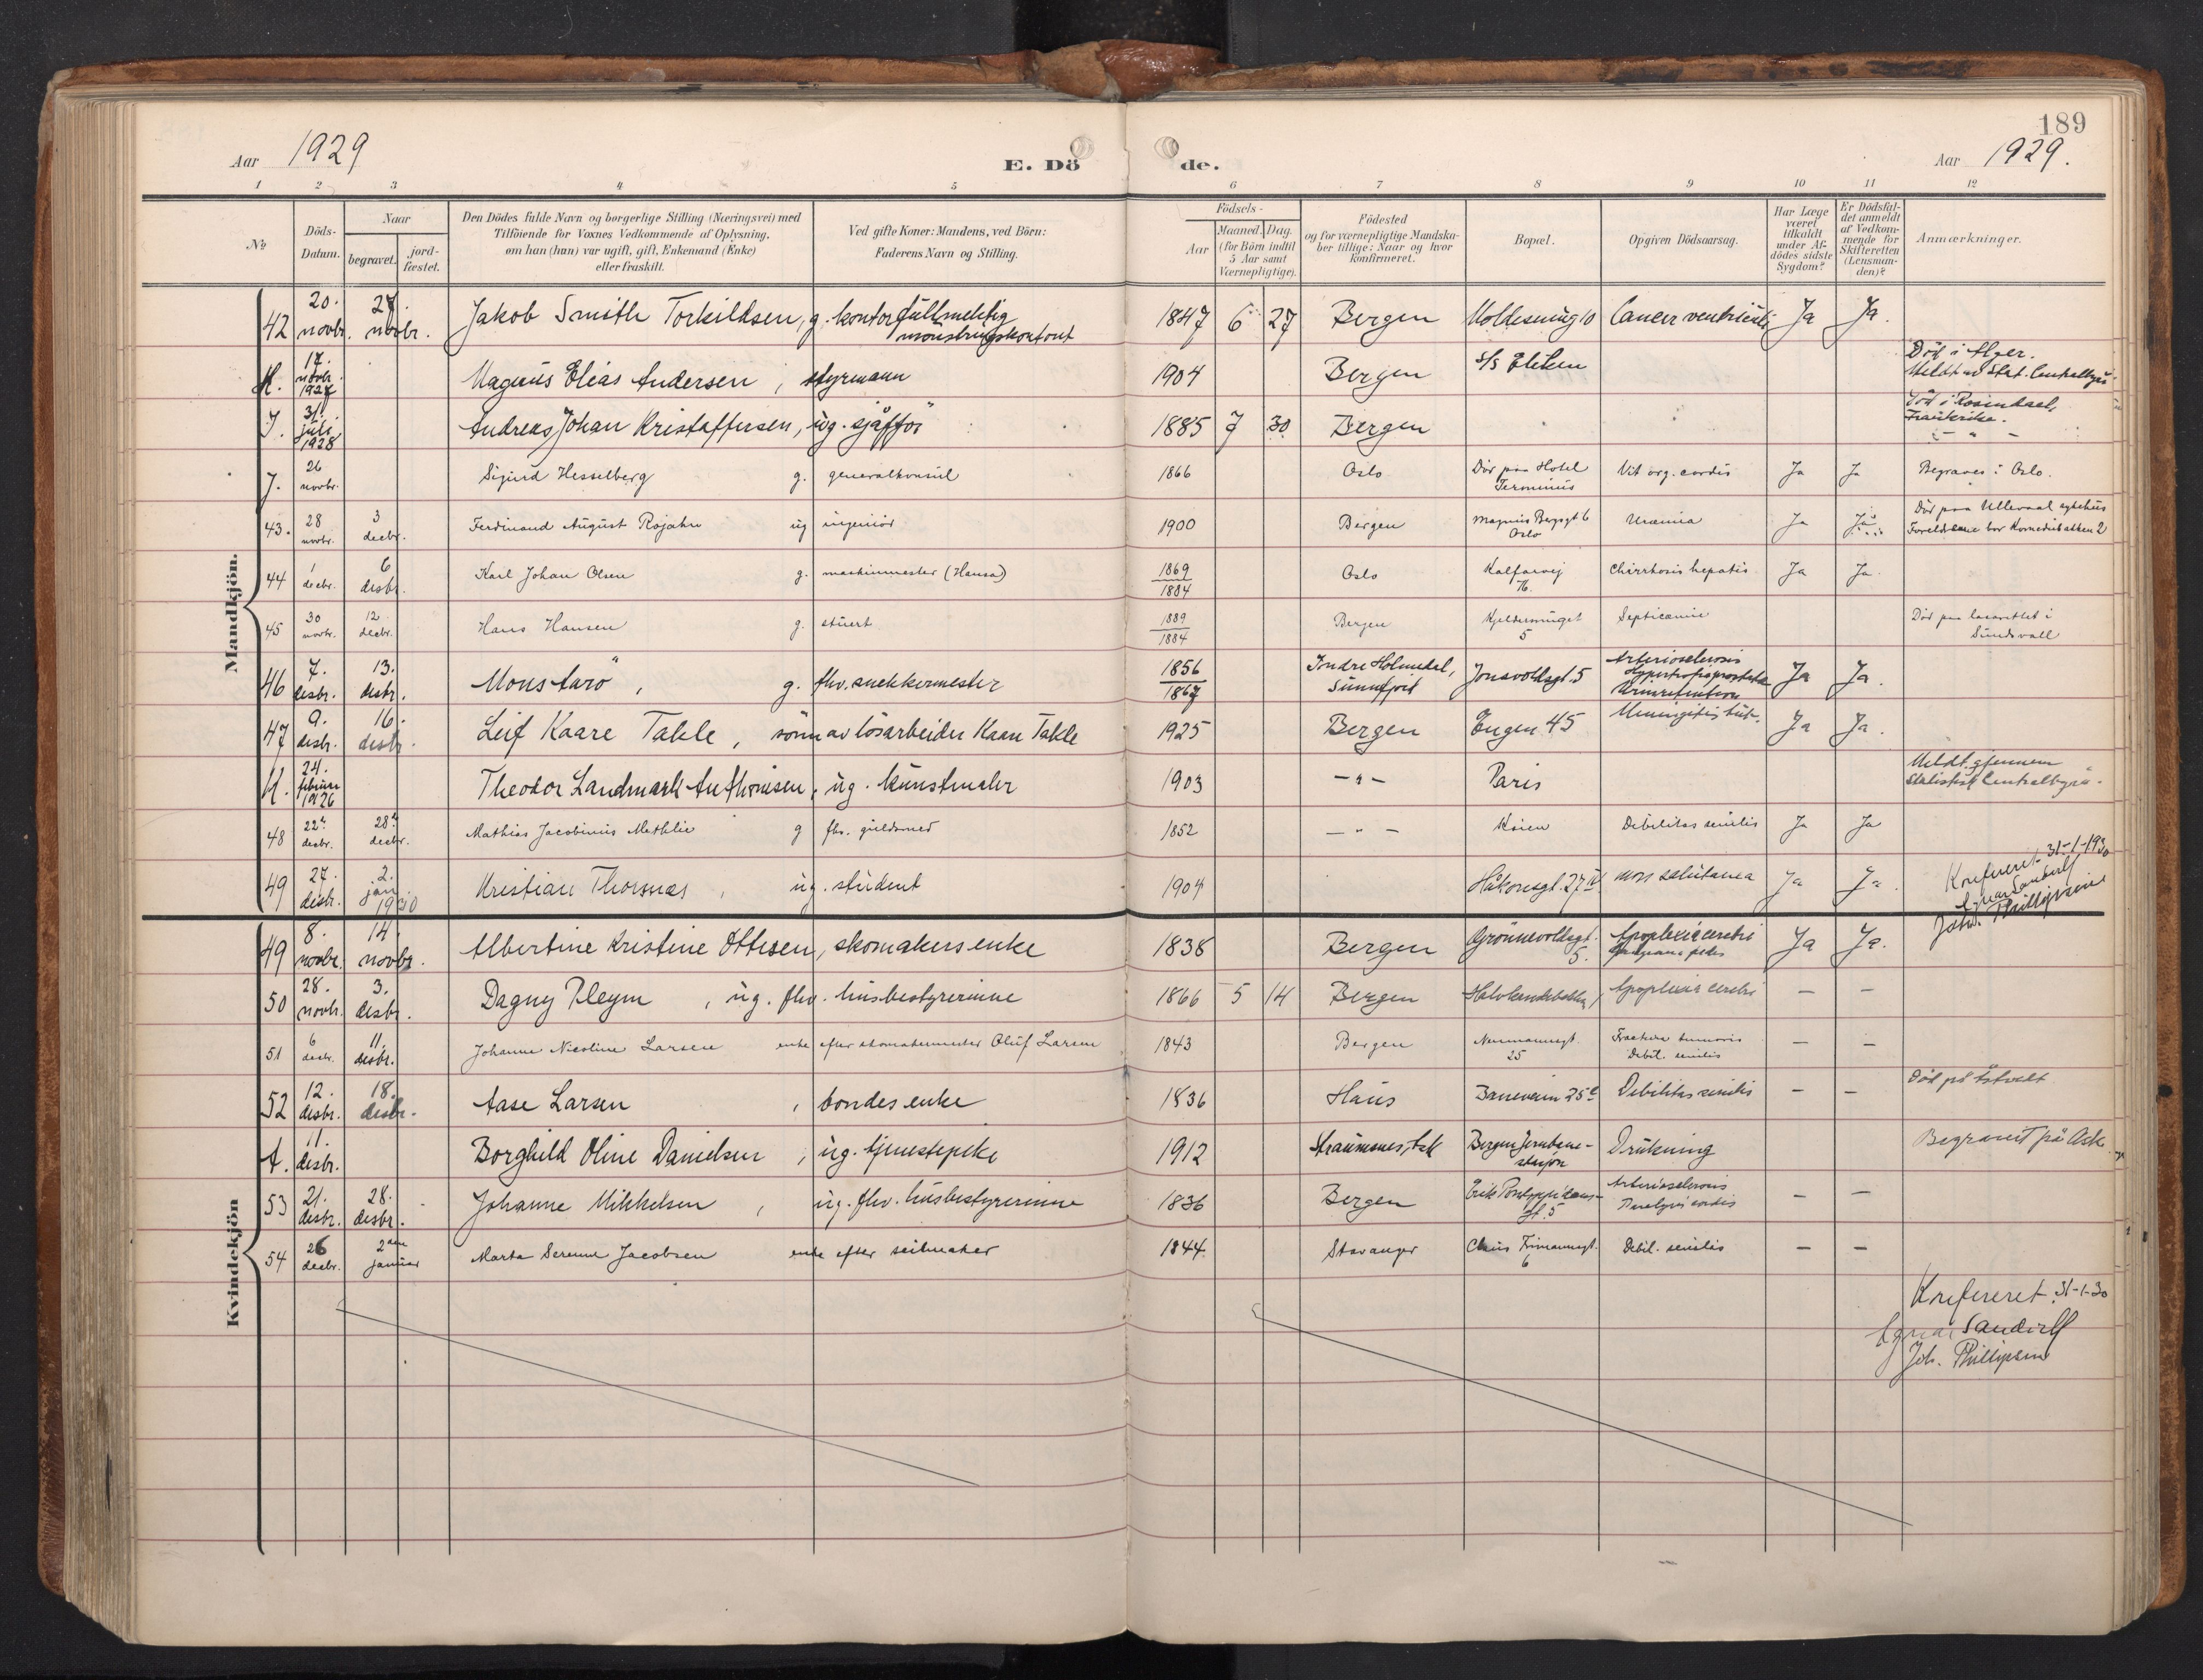 189
Aar 1929
E. Dö de.
Aar 1929.
1 2 3 4 5 6 7 8 9 10 11 12
No
Döds-Datum.
Naar
begravet.
jordfæstet.
Den Dödes fulde Navn og borgerlige Stilling (Næringsvei) med
Tilföiende for Voxnes Vedkommende af Oplysning,
om han (hun) var ugift, gift, Enkemand (Enke)
eller fraskilt.
Ved gifte Koner: Mandens, ved Börn:
Faderens Navn og Stilling.
Födsels-
Aar
Maaned. Dag.
(for Börn indtil
5 Aar samt
Værnepligtige).
Födested
og for værnepligtige Mandskaber tillige: Naar og hvor
konfirmeret.
Bopæl.
Opgiven Dödsaarsag.
Har Læge
været
tilkaldt
under Afdödes sidste
Sygdom?
Er Dödsfaldet anmeldt
af Vedkommende for
Skifteretten
(Lensmanden)?
Anmærkninger.
Mandkjön.
42 20. novbr. 27. novbr. Jakob Smith Torkildsen, g. kontorfullmektig mönstringskontoret 1847 6 27 Bergen Cancer ventriculi Ja Ja.
17. novbr. Magnus Elias Andersen, styrmann 1904 Bergen s/s Död i Meldt av Stat. Centralbyrå
J. 31. juli 1928 Andreas Johan Kristoffersen, ug. sjåfför 1885 7 30 Bergen Död i Rosendael, Frankrike. - " -
J. 26 novbr. Sigurd Hesselberg g. generalkonsul 1866 Oslo Död paa Hotel Terminus Vit. org. cordis Ja Ja Begraves i Oslo.
43. 28 novbr. 3 decbr. Ferdinand August Rojahn ug ingeniör 1900 Bergen Magnus Bergsgt 6 Oslo Uræmia Ja Ja Död paa Ullevaal sykehus Foreldrene bor Komediebakken 2
44 1 decbr. 6 desbr. Karl Johan Olsen g. maskinmester (Hansa) 1869 1884 Oslo Kalfarvej 76. Chirrhosis hepatis Ja Ja.
45 30 novbr. 12 decbr. Hans Hansen g. stuert 1889 1884 Bergen 5 Septicæmie Död paa lasarettet i Sundsvall
46 7. desbr. 13. desbr. Mons Farö, g. fhv. snekkermester 1856 1867 Indre Holmedal, Sunnfjord Jonsvollsgt. 5 Arteriosclerosis Hypertrofia prostatæ Urinretention Ja Ja.
47 9. desbr. 16. desbr. Leif Kaare Takle, sönn av lösarbeider Kaare Takle 1925 Bergen Engen 45 Meningitis tub. Ja Ja.
24. februar 1926 Theodor Landmark Anthonisen, ug. kunstmaler 1903 - " - Paris Meldt gjennem Statistisk Centralbyrå.
48 22. decbr. 28. decbr. Mathias Jacobinus Methlie g fhv. guldsmed 1852 - " - Debilitas senilis Ja Ja
49 27. desbr. 2. jan. 1930 Kristian Thorsnæs, ug. student 1904 Håkonsgt. 27 mors Ja Ja.
Konfereret 31-1-1930
Joh. Phillipsen
Kvindekjön
49 8. novbr. 14. novbr. Albertine Kristine Ottesen, skomakers enke 1838 Bergen Grönnevoldsgt. 5. Apoplexia cerebri Gangræna pedis Ja Ja.
50 28. novbr. 3. desbr. Dagny Pleym, ug. fhv. husbestyrerinne 1866 5 14 Bergen Apoplexia cerebri - -
51 6 desbr. 11. desbr. Johanne Nicoline Larsen enke efter skomakermester Oluf Larsen 1843 Bergen Neumannsgt. 25 Fractura humoris Debil. senilis - -
52 12. desbr. 18. desbr. Aase Larsen, bondes enke 1836 Haus Baneveien 25 Debilitas senilis - - Död på
A. 11. desbr. Borghild Oline Danielsen, ug. tjenestepike 1912 Straumsnes, Ask Bergen Jernbanestasjon Drukning Begravet på Ask
53 21. desbr. 28. desbr. Johanne Mikkelsen, ug. fhv. husbestyrerinne 1836 Bergen Erik Pontoppidansgt. 5 Arteriosclerosis Paralysis cordis - -
54 26 decbr. 2den januar Marta Serenne Jacobsen enke efter seilmaker 1844 Stavanger Claus Frimannsgt. 6 Debil. senilis - -
Konfereret 31-1-30
Joh. Phillipsen